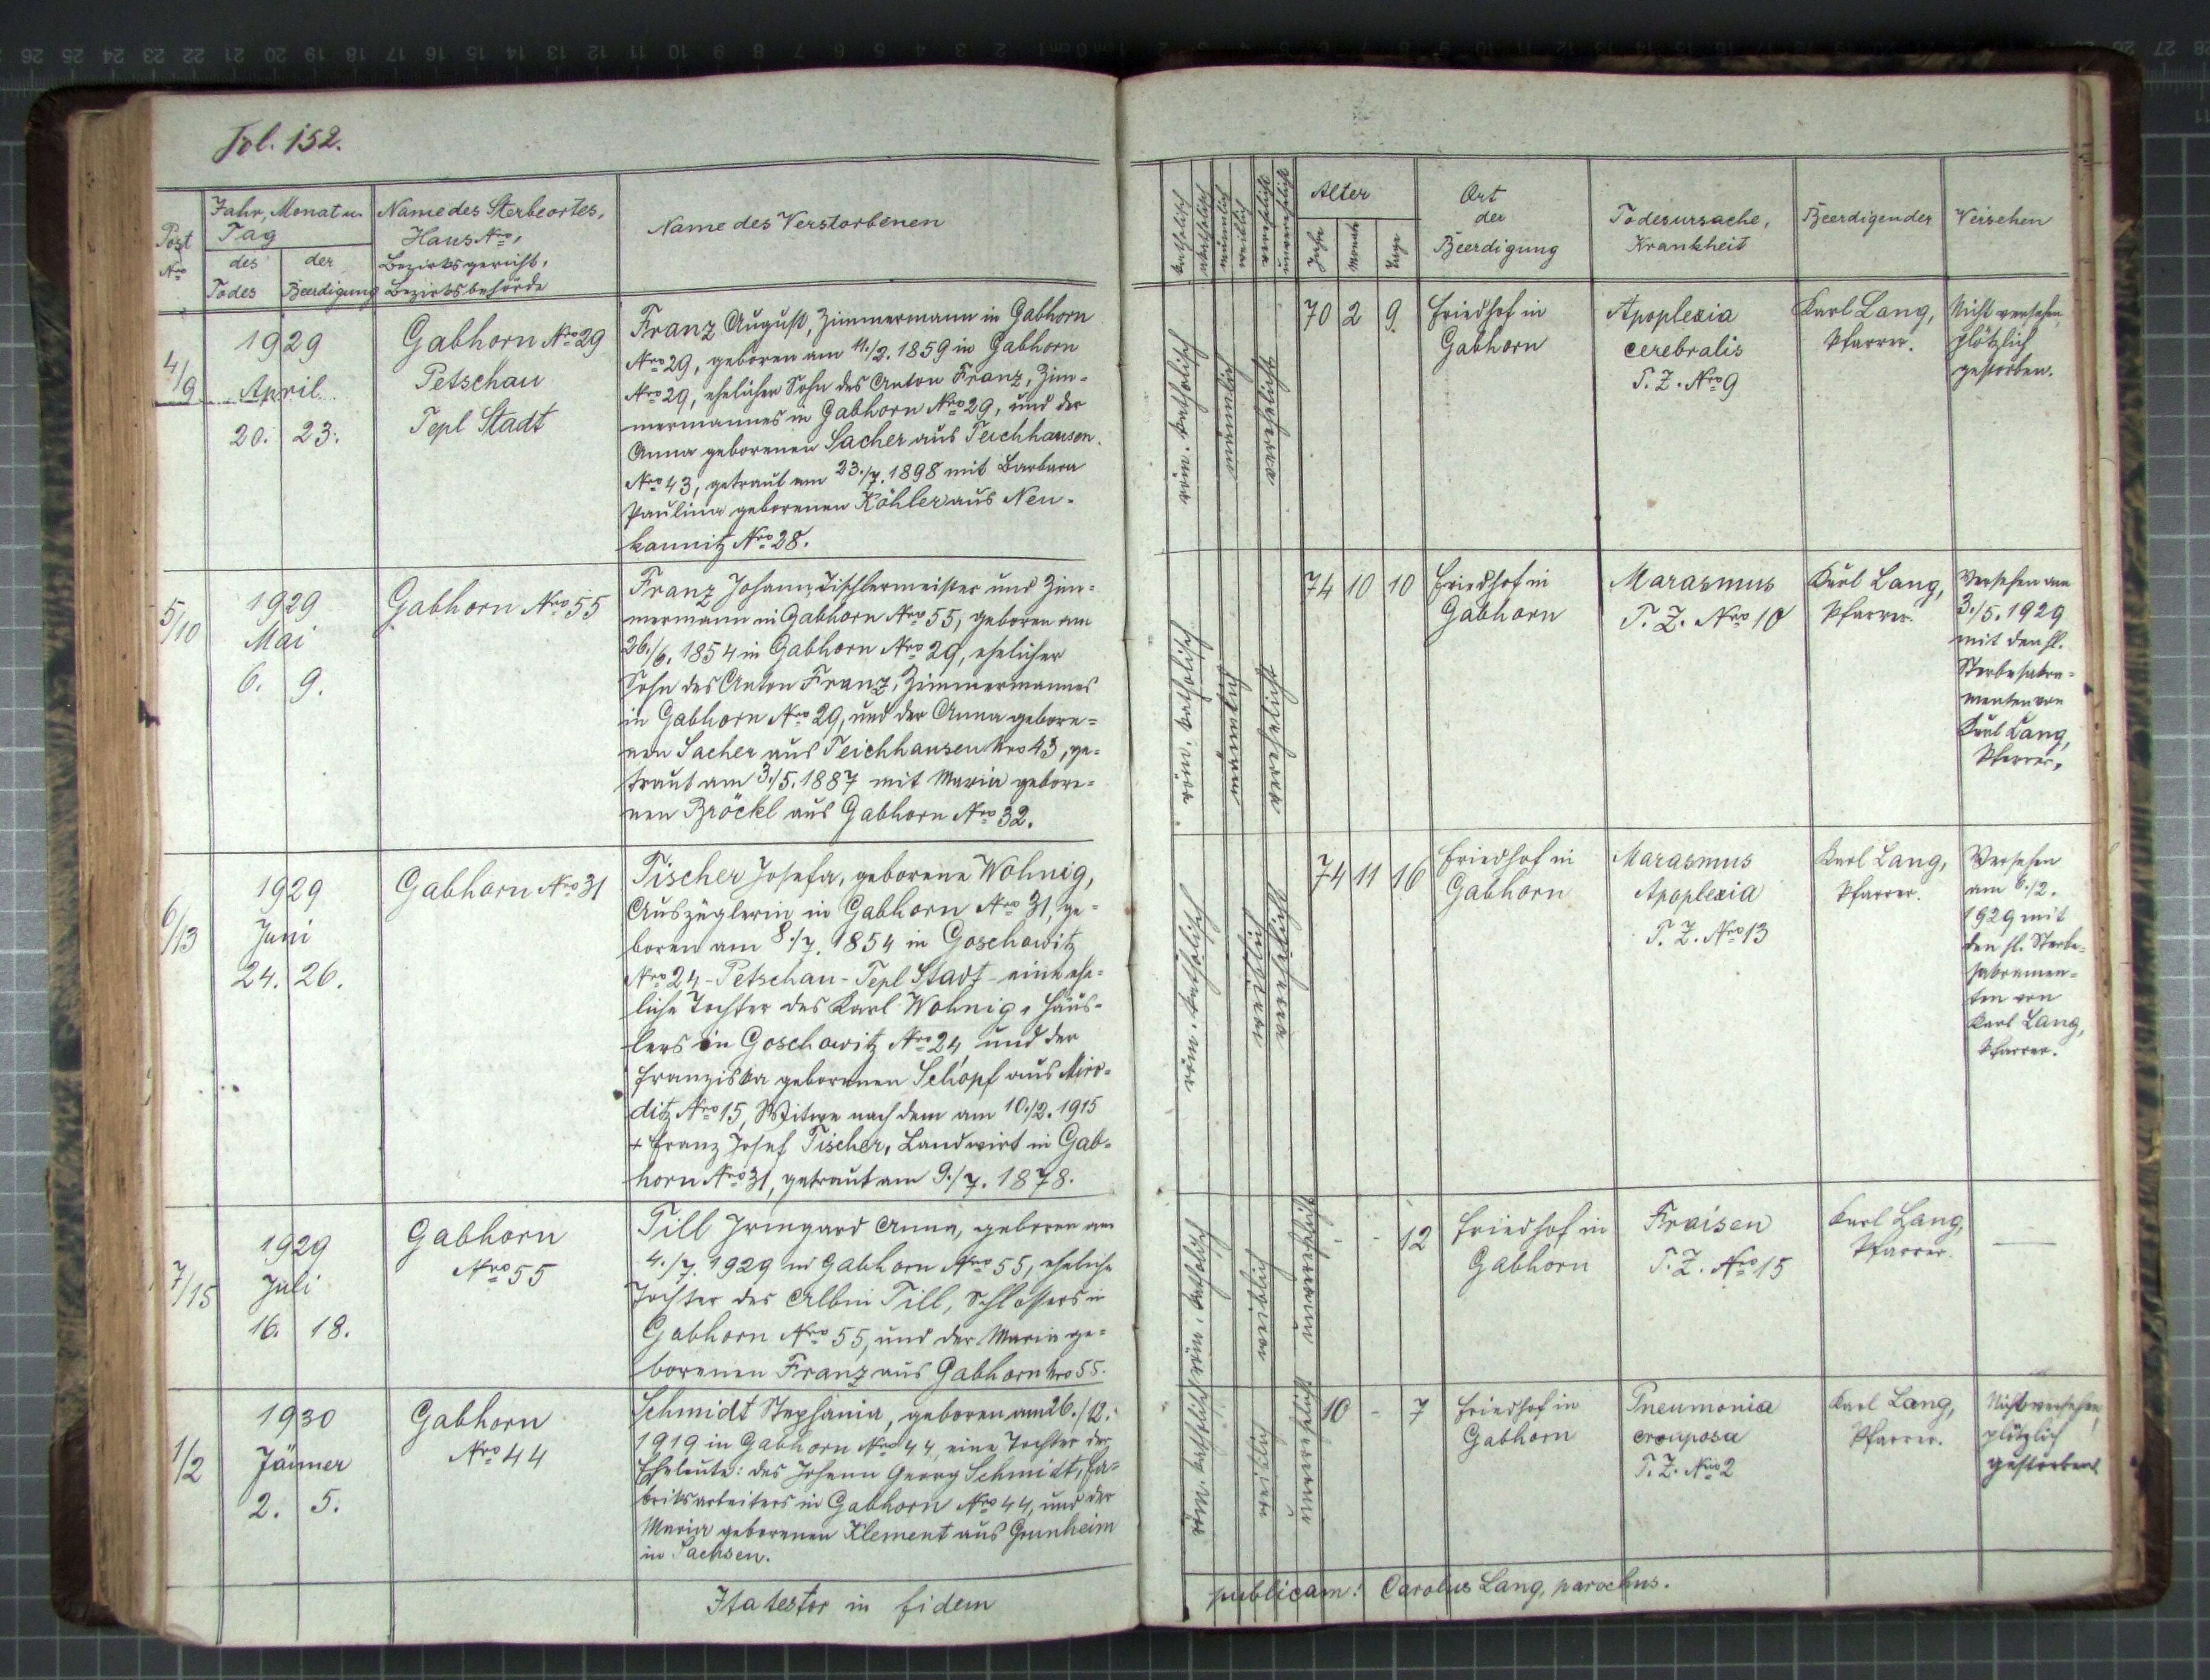 Fol. 152.
Post Nro
Jahr, Monat u. Tag
des Todes
der Beerdigung
Name des Sterbeortes,
Haus Nro,
Bezirksgericht,
Bezirksbehörde
Name des Verstorbenen
katholisch
akatholisch
männlich
weiblich
verehelicht
unverehelicht
Alter
Jahre
Monate
Tage
Ort
der
Beerdigung
Todesursache,
Krankheit
Beerdigender
Versehen
4/9
1929
April
20. 23.
Gabhorn Nro 29
Petschau
Tepl Stadt
Franz August, Zimmermann in Gabhorn
Nro 29, geboren am 11./2. 1859 in Gabhorn
Nro 29, ehelicher Sohn des Anton Franz, Zim=
mermannes in Gabhorn Nro 29, und der
Anna geborenen Sacher aus Teichhausen
Nro 43, getraut am 23./7. 1898 mit Barbara
Paulina geborenen Köhler aus Neu=
kaunitz Nro 28.
röm. katholisch
männlich
verehelicht
70 2 9.
Friedhof in
Gabhorn
Apoplexia
cerebralis
T. Z. Nro 9
Karl Lang,
Pfarrer.
Nicht versehen,
plötzlich
gestorben.
5/10
1929
Mai
6. 9.
Gabhorn Nro 55
Franz Johann, Tischlermeister und Zim=
mermann in Gabhorn Nro 55, geboren am
26./6. 1854 in Gabhorn Nro 29, ehelicher
Sohn des Anton Franz, Zimmermannes
in Gabhorn Nro 29, und der Anna gebore=
nen Sacher aus Teichhausen Nro 43, ge=
traut am 3./5. 1887 mit Maria gebore=
nen Bröckl aus Gabhorn Nro 32.
röm. katholisch
männlich
verehelicht
74 10 10
Friedhof in
Gabhorn
Marasmus
T. Z. Nro 10
Karl Lang,
Pfarrer.
Versehen am
3./5. 1929
mit den hl.
Sterbesakra=
menten von
Karl Lang,
Pfarrer.
6/13
1929
Juni
24. 26.
Gabhorn Nro 31
Tischer Josefa, geborene Wohnig,
Auszüglerin in Gabhorn Nro 31, ge=
boren am 8./7. 1854 in Goschowitz
Nro 24 - Petschau - Tepl Stadt - eine ehe=
liche Tochter des Karl Wohnig, Häus=
lers in Goschowitz Nro 24, und der
Franziska geborenen Schöpf aus Miro=
ditz Nro 15, Witwe nach dem am 10./2. 1915
+ Franz Josef Tischer, Landwirt in Gab=
horn Nro 31, getraut am 9./7. 1878.
röm. katholisch
weiblich
verehelicht
74 11 16
Friedhof in
Gabhorn
Marasmus
Apoplexia
T. Z. Nro 13
Karl Lang,
Pfarrer.
Versehen
am 6./2.
1929 mit
den hl. Sterbe=
sakramen=
ten von
Karl Lang,
Pfarrer.
7/15
1929
Juli
16. 18.
Gabhorn
Nro 55
Till Irmgard Anna, geboren am
4./7. 1929 in Gabhorn Nro 55, eheliche
Tochter des Albin Till, Schlossers in
Gabhorn Nro 55, und der Maria ge=
borenen Franz aus Gabhorn Nro 55.
röm. katholisch
weiblich
unverehelicht
- - 12
Friedhof in
Gabhorn
Fraisen
T. Z. Nro 15
Karl Lang,
Pfarrer.
—
1/2
1930
Jänner
2. 5.
Gabhorn
Nro 44
Schmidt Stephania, geboren am 26./12.
1919 in Gabhorn Nro 44, eine Tochter der
Eheleute: des Johann Georg Schmidt, Fa=
briksarbeiters in Gabhorn Nro 44, und der
Maria geborenen Klement aus Grunheim
in Sachsen.
röm. katholisch
weiblich
unverehelicht
10 - 7
Friedhof in
Gabhorn
Pneumonia
crouposa
T. Z. Nro 2
Karl Lang,
Pfarrer.
Nicht versehen,
plötzlich
gestorben.
Ita testor in fidem publicam: Carolus Lang, parochus.